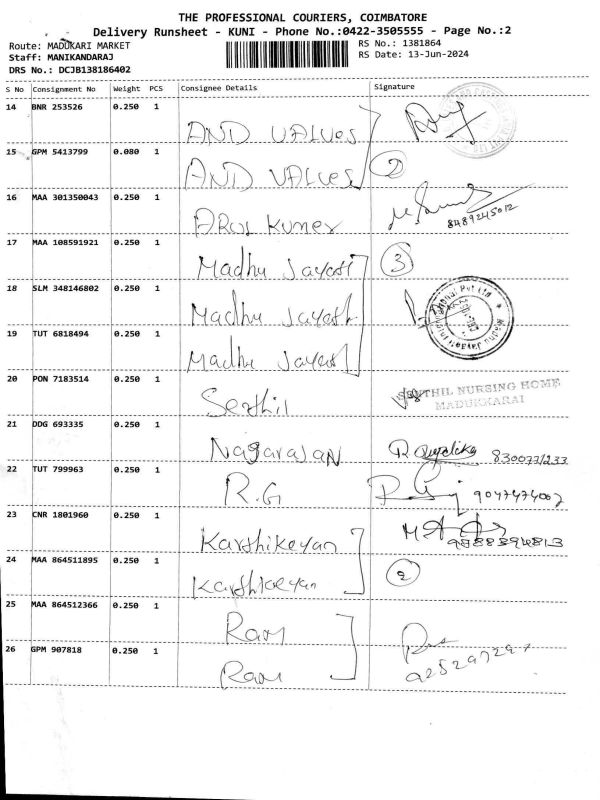 THE PROFESSIONAL COURIERS, COIMBATORE
Delivery Runsheet - KUNI - Phone No.:0422-3505555 - Page No.:2
Route: MADUKARI MARKET
RS No.: 1381864
Staff: MANIKANDARAJ
RS Date: 13-Jun-2024
DRS No.: DCJB138186402
S No Consignment No Weight PCS Consignee Details Signature
14 BNR 253526 0.250 1 AND VALUES
15 GPM 5413799 0.080 1 AND VALUES 2
16 MAA 301350043 0.250 1 AROL KUMER 8489245012
17 MAA 108591921 0.250 1 Madhu Jayasti 3
18 SLM 348146802 0.250 1 Madhu Jayasti
19 TUT 6818494 0.250 1 Madhu Jayasti
20 PON 7183514 0.250 1 Senthil SENTHIL NURSING HOME
MADUKKARAI
21 DDG 693335 0.250 1 NAGARAJAN
22 TUT 799963 0.250 1 R.G 9047474002
23 CNR 1801960 0.250 1 Karthikeyan
24 MAA 864511895 0.250 1 Karthikeyan 2
25 MAA 864512366 0.250 1 Ram
26 GPM 907818 0.250 1 Ram 925297297